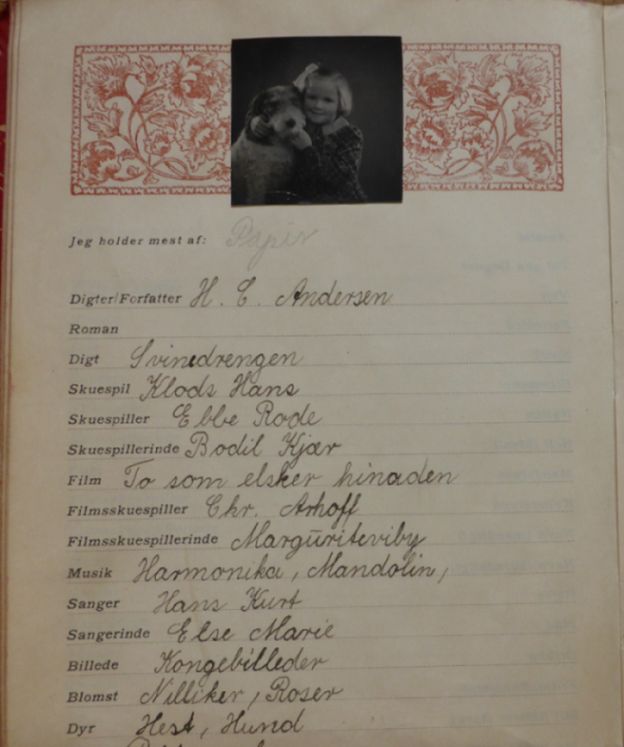 Jeg holder mest af: Papir
Digter/Forfatter H. C. Andersen
Roman
Digt Svinedrengen
Skuespil Klods Hans
Skuespiller Ebbe Rode
Skuespillerinde Bodil Kjær
Film To som elsker hinaden
Filmsskuespiller Chr. Arhoff
Filmsskuespillerinde Margüriteviby
Musik Harmonika, Mandolin,
Sanger Hans Kurt
Sangerinde Else Marie
Billede Kongebilleder
Blomst Nilliker, Roser
Dyr Hest, Hund